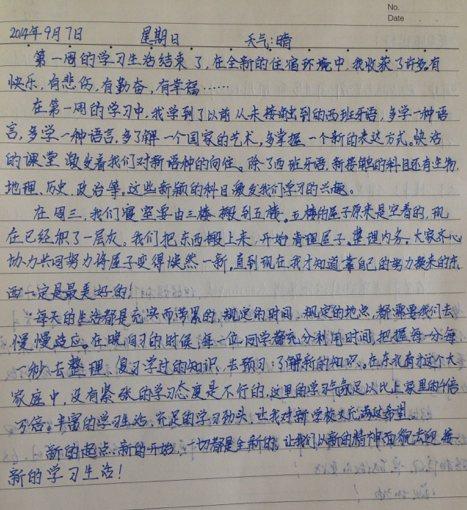 No.
Date
2014年9月7日 星期日 天气:晴
第一周的学习生活结束了,在全新的住宿环境中,我收获了许多有
快乐,有悲伤,有勤奋,有幸福……
在第一周的学习中,我学到了以前从未接触到的西班牙语,多学一种语
言,多学一种语言,多了解一个国家的艺术,多掌握一个新的表达方式。快活
的课堂激发着我们对新语种的向往。除了西班牙语,新接触的科目还有生物,
地理,历史,政治等,这些新颖的科目激发我们学习的兴趣。
在周三,我们寝室要由三楼搬到五楼。五楼的屋子原来是空着的,现
在已经积了一层灰。我们把东西搬上来,开始清理屋子,整理内务,大家齐心
协力共同努力将屋子变得焕然一新,直到现在我才知道靠自己的努力换来的东
西一定是最美好的!
每天的生活都是充实而紧累的,规定的时间,规定的地点,都需要我们去
慢慢适应。在晚自习的时候,每一位同学都充分利用时间,把握每一分每
一秒去整理,复习学过的知识,去预习,了解新的知识。在东北育才这个大
家庭中,没有紧张的学习态度是不行的,这里的学习气氛足以比上家里的千倍
万倍。丰富的学习生活,充足的学习劲头,让我对新学校又充满了希望
新的起点,新的开始,一切都是全新的。让我们以新的精神面貌去迎接
新的学习生活!